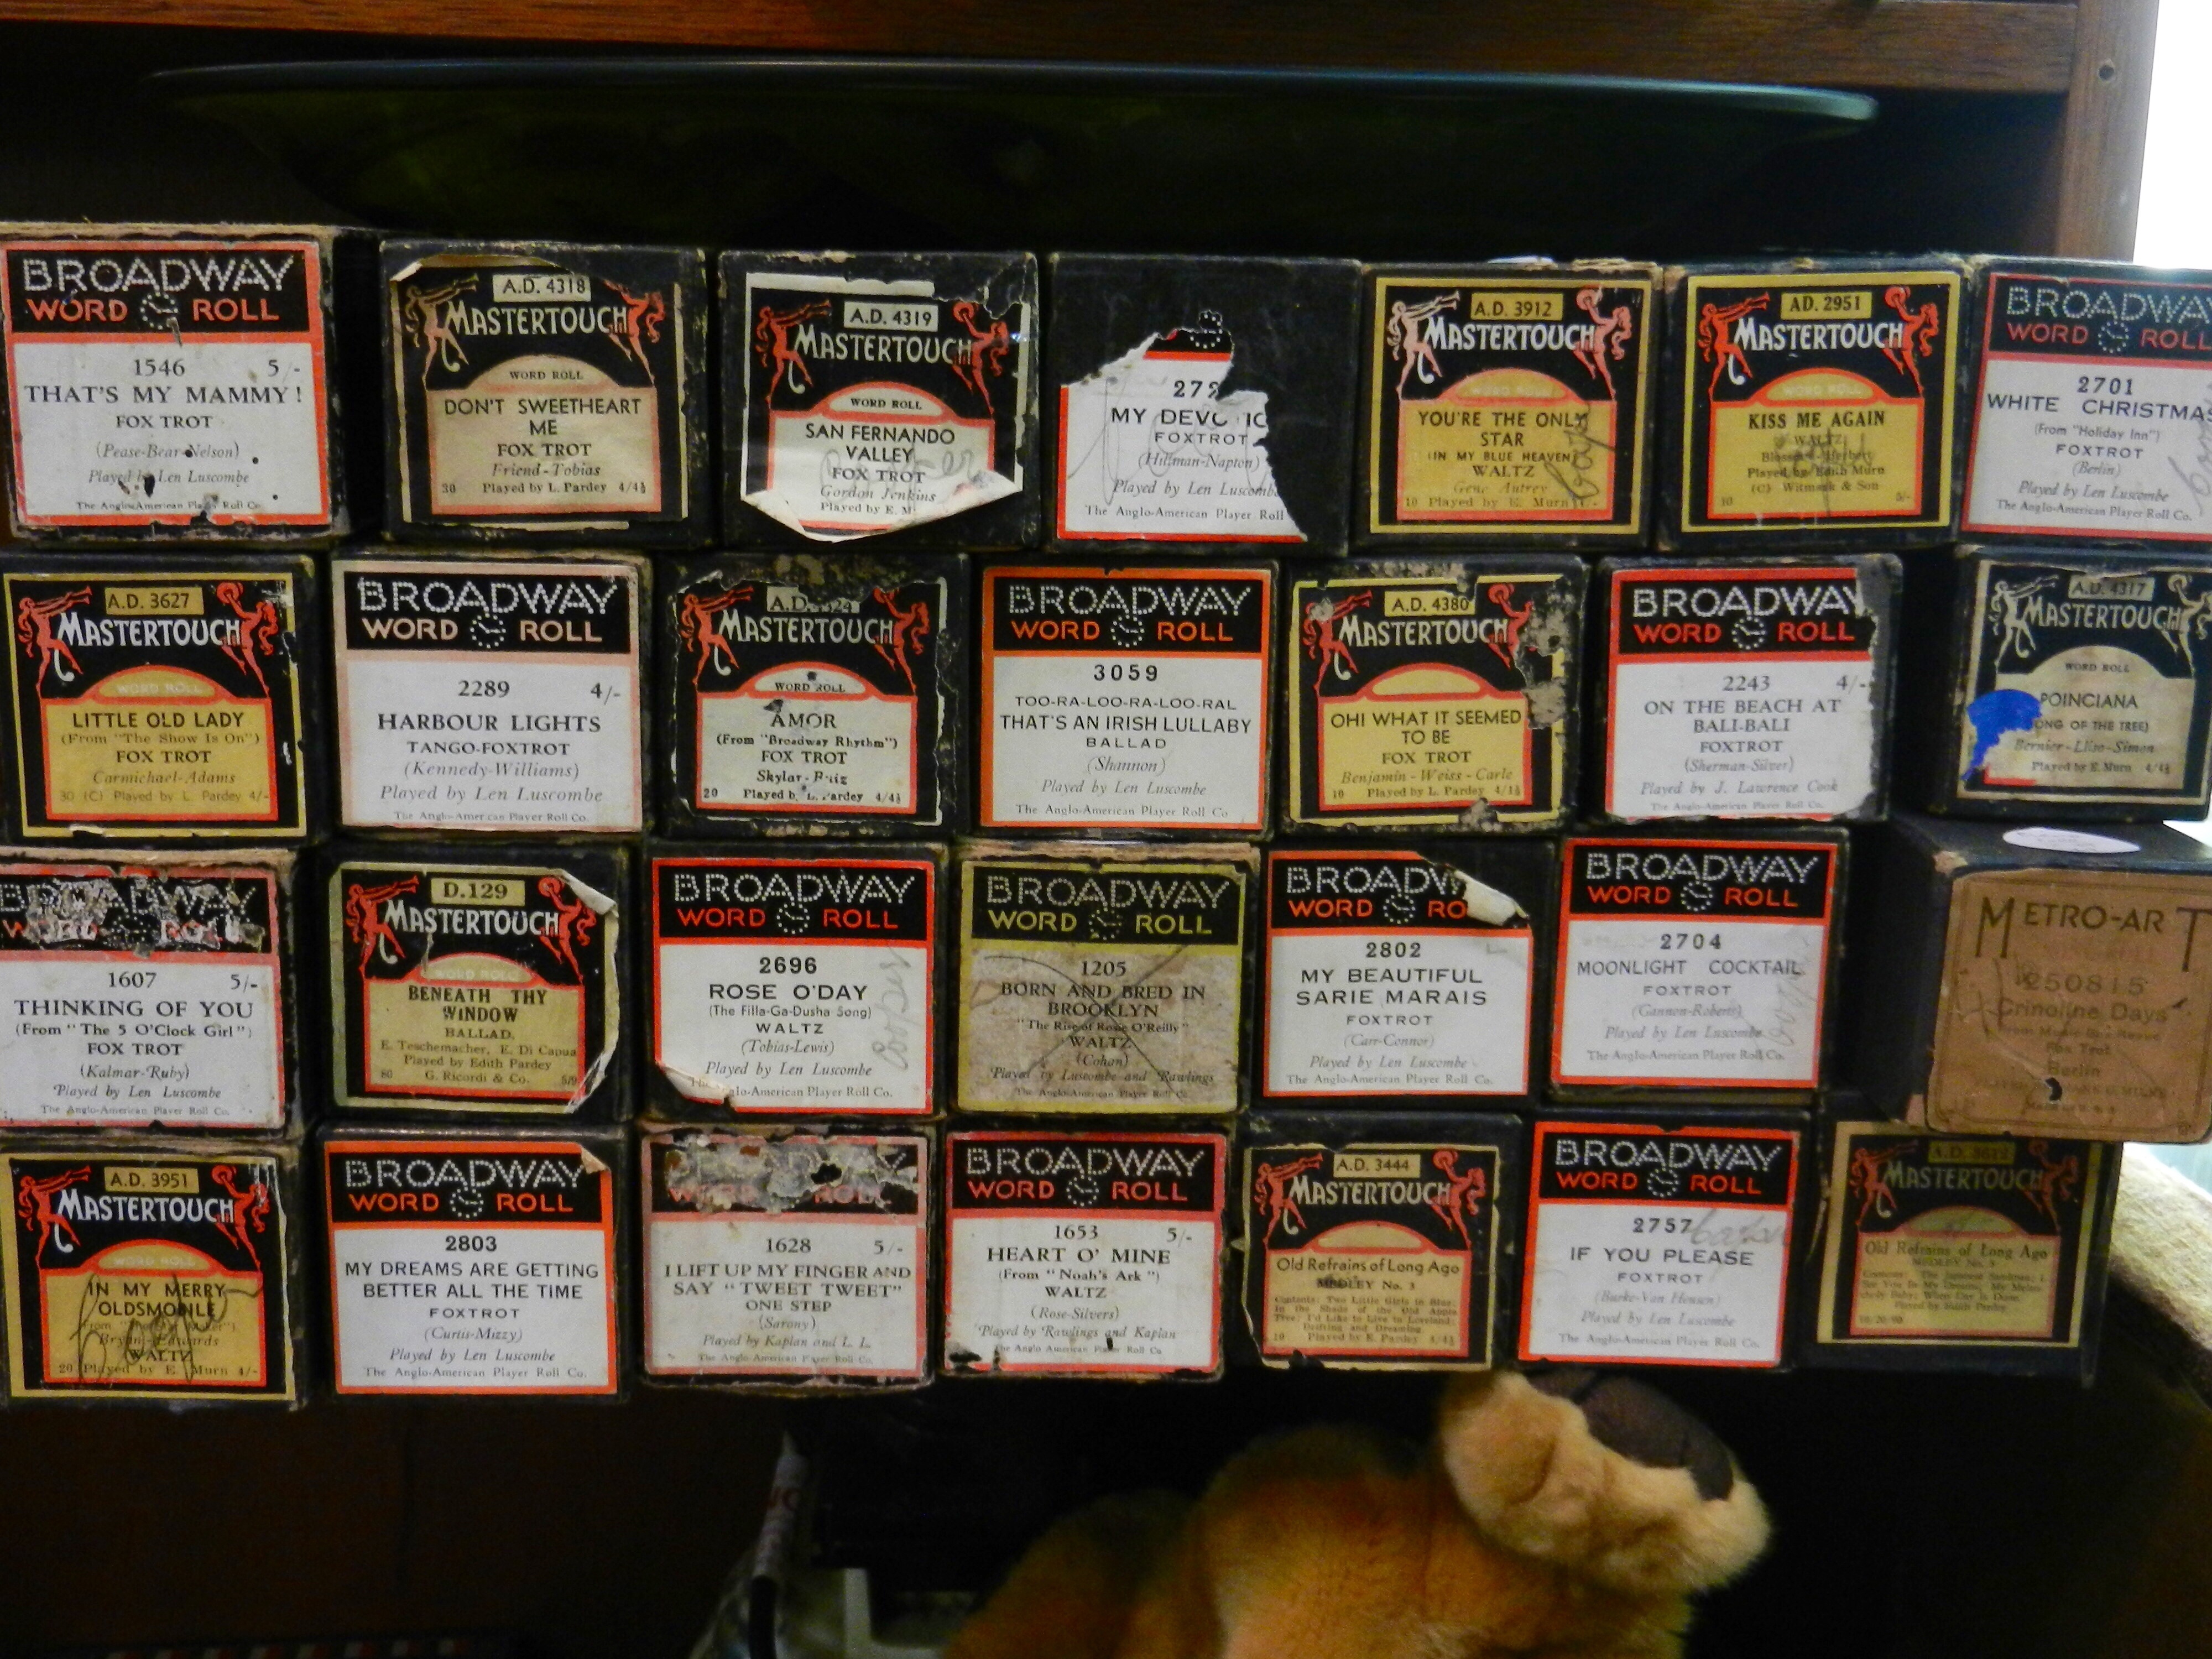 BROADWAY
WORD ROLL
1546 5/-
THAT'S MY MAMMY!
FOX TROT
(Pease-Bear-Nelson)
Played by Len Luscombe
The Anglo-American Player Roll Co.
A.D. 4318
MASTERTOUCH
WORD ROLL
DON'T SWEETHEART
ME
FOX TROT
Friend-Tobias
30 Played by L. Pardey 4/4½
A.D. 4319
MASTERTOUCH
WORD ROLL
SAN FERNANDO
VALLEY
FOX TROT
Gordon Jenkins
Played by E. M
MY DEVOTIO
FOXTROT
(Hillman-Napton)
Played by Len Luscombe
The Anglo-American Player Roll
A.D. 3912
MASTERTOUCH
WORD ROLL
YOU'RE THE ONLY
STAR
(IN MY BLUE HEAVEN)
WALTZ
Gene Autrey
10 Played by E. Murn
AD. 2951
MASTERTOUCH
WORD ROLL
KISS ME AGAIN
WALTZ
Blossom-Herbert
Played by Edith Murn
(C) Witmark & Son
10 5/-
BROADWAY
WORD ROLL
2701
WHITE CHRISTMAS
(From "Holiday Inn")
FOXTROT
(Berlin)
Played by Len Luscombe
The Anglo-American Player Roll Co.
A.D. 3627
MASTERTOUCH
WORD ROLL
LITTLE OLD LADY
(From "The Show Is On")
FOX TROT
Carmichael-Adams
30 (C) Played by L. Pardey 4/-
BROADWAY
WORD ROLL
2289 4/-
HARBOUR LIGHTS
TANGO-FOXTROT
(Kennedy-Williams)
Played by Len Luscombe
The Anglo-American Player Roll Co.
A.D.
MASTERTOUCH
WORD ROLL
AMOR
(From "Broadway Rhythm")
FOX TROT
Skylar-Ruiz
20 Played by L. Pardey 4/4½
BROADWAY
WORD ROLL
3059
TOO-RA-LOO-RA-LOO-RAL
THAT'S AN IRISH LULLABY
BALLAD
(Shannon)
Played by Len Luscombe
The Anglo-American Player Roll Co.
A.D. 4380
MASTERTOUCH
OH! WHAT IT SEEMED
TO BE
FOX TROT
Benjamin-Weiss-Carle
10 Played by L. Pardey 4/4½
BROADWAY
WORD ROLL
2243 4/-
ON THE BEACH AT
BALI-BALI
FOXTROT
(Sherman-Silver)
Played by J. Lawrence Cook
The Anglo-American Player Roll Co.
A.D. 4317
MASTERTOUCH
WORD ROLL
POINCIANA
ONG OF THE TREE)
Bernier-Lliso-Simon
Played by E. Murn 4/4½
BROADWAY
WORD ROLL
1607 5/-
THINKING OF YOU
(From "The 5 O'Clock Girl")
FOX TROT
(Kalmar-Ruby)
Played by Len Luscombe
The Anglo-American Player Roll Co.
D.129
MASTERTOUCH
WORD ROLL
BENEATH THY
WINDOW
BALLAD.
E. Teschemacher, E. Di Capua
Played by Edith Pardey
80 G. Ricordi & Co. 5/9
BROADWAY
WORD ROLL
2696
ROSE O'DAY
(The Filla-Ga-Dusha Song)
WALTZ
(Tobias-Lewis)
Played by Len Luscombe
The lo-American Player Roll Co.
BROADWAY
WORD ROLL
1205
BORN AND BRED IN
BROOKLYN
"The Rise of Rosie O'Reilly"
WALTZ
(Cohan)
Played by Luscombe and Rawlings
The Anglo-American Player Roll Co.
BROADW
WORD RO
2802
MY BEAUTIFUL
SARIE MARAIS
FOXTROT
(Carr-Connor)
Played by Len Luscombe
The Anglo-American Player Roll Co.
BROADWAY
WORD ROLL
2704
MOONLIGHT COCKTAIL
FOXTROT
(Gannon-Roberts)
Played by Len Luscombe
The Anglo-American Player Roll Co.
METRO-ART
250815
Crinoline Days
Fox Trot
Berlin
A.D. 3951
MASTERTOUCH
WORD ROLL
IN MY MERRY
OLDSMOBILE
Bryan-Edwards
WALTZ
20 Played by E. Murn 4/-
BROADWAY
WORD ROLL
2803
MY DREAMS ARE GETTING
BETTER ALL THE TIME
FOXTROT
(Curtis-Mizzy)
Played by Len Luscombe
The Anglo-American Player Roll Co.
ROLL
1628 5/-
I LIFT UP MY FINGER AND
SAY "TWEET TWEET"
ONE STEP
(Sarony)
Played by Kaplan and L. L.
The Anglo-American Player Roll Co.
BROADWAY
WORD ROLL
1653 5/-
HEART O' MINE
(From "Noah's Ark")
WALTZ
(Rose-Silvers)
Played by Rawlings and Kaplan
The Anglo-American Player Roll Co
A.D. 3444
MASTERTOUCH
Old Refrains of Long Ago
MEDLEY No. 3
Contents: Two Little Girls in Blue;
In the Shade of the Old Apple
Tree; I'd Like to Live in Loveland;
Drifting and Dreaming
10 Played by E. Pardey 4/4½
BROADWAY
WORD ROLL
2757
IF YOU PLEASE
FOXTROT
(Burke-Van Heusen)
Played by Len Luscombe
The Anglo-American Player Roll Co.
A.D.
MASTERTOUCH
Old Refrains of Long Ago
Played by Edith Pardey